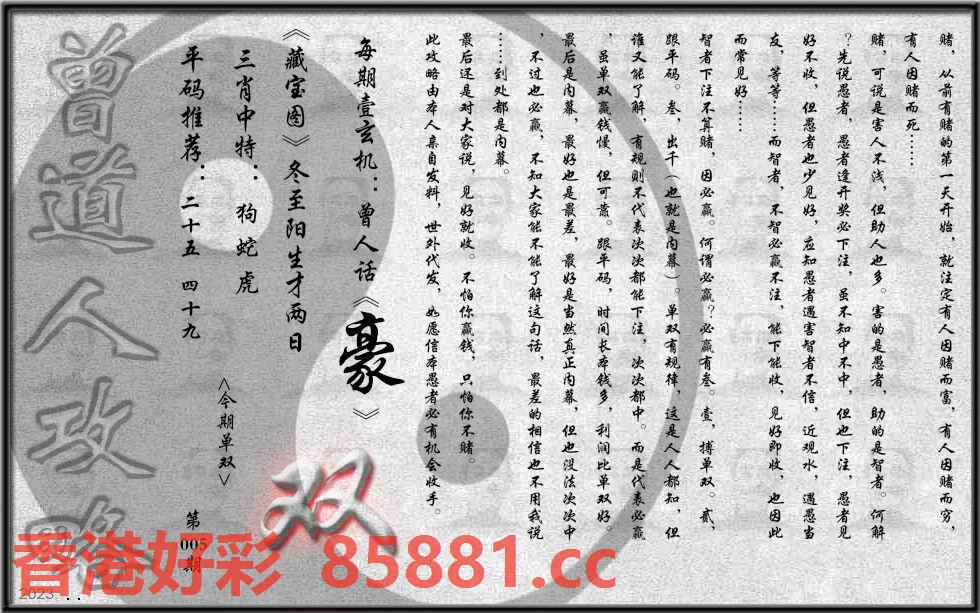 赌，从前有赌的第一天开始，就注定有人因赌而富，有人因赌而穷，
有人因赌而死……
赌，可说是害人不浅，但助人也多。害的是愚者，助的是智者。何解
？先说愚者，愚者逢开奖必下注，虽不知中不中，但也下注，愚者见
好不收，但愚者也少见好，应知愚者遇害智者不信，近观水，遇愚当
友，等等……而智者，不智必赢不注，能下能收，见好即收，也因此
而常见好……
智者下注不算赌，因必赢。何谓必赢？必赢有叁。壹，搏单双。贰，
跟平码。叁，出千（也就是内幕）。单双有规律，这是人人都知，但
谁又能了解，有规则不代表次次都能下注，次次都中。而是代表必赢
，虽单双赢钱慢，但可蓄。跟平码，时间长本钱多，利润比单双好。
最后是内幕，最好也是最差，最好是当然真正内幕，但也没法次次中
，不过也必赢，不知大家能不能了解这句话，最差的相信也不用我说
……到处都是内幕。
最后还是对大家说，见好就收。不怕你赢钱，只怕你不赌。
此攻略由本人亲自发料，世外代发，如愿信本愚者必有机会收手。
每期壹玄机：曾人话《豪》
《藏宝图》冬至阳生才两日
三肖中特：狗蛇虎
平码推荐：二十五 四十九
<今期单双>
双
第005期
曾道人攻略
香港好彩 85881.cc
2023